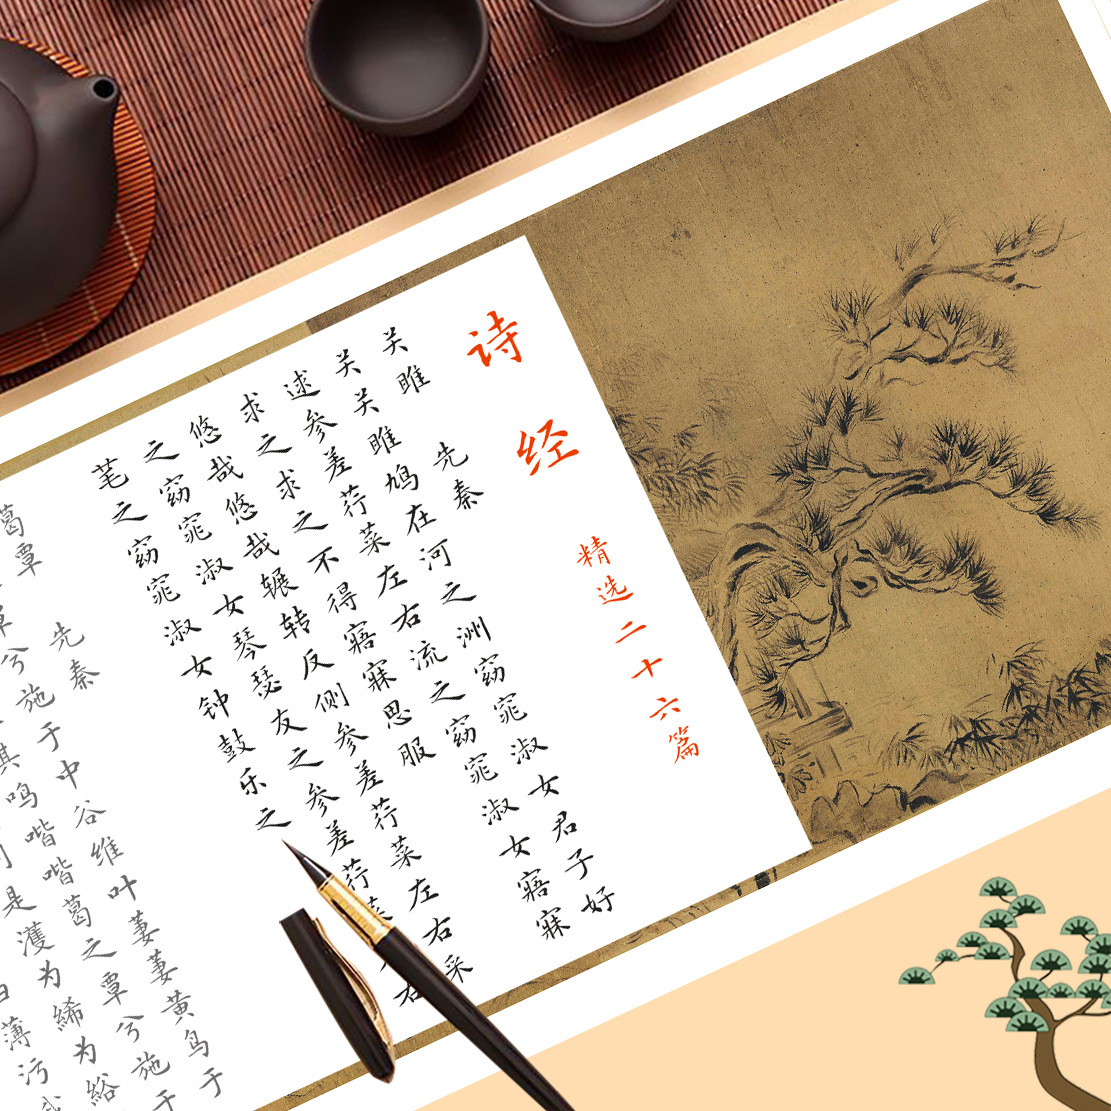 诗经
精选二十六篇
关雎
先秦
关关雎鸠在河之洲窈窕淑女君子好
逑参差荇菜左右流之窈窕淑女寤寐
求之求之不得寤寐思服
悠哉悠哉辗转反侧参差荇菜左右采
之窈窕淑女琴瑟友之参差荇菜右
芼之窈窕淑女钟鼓乐之
葛覃
先秦
覃兮施于中谷维叶萋萋黄鸟于
其鸣喈喈葛之覃兮施于
是濩为絺为綌
薄污